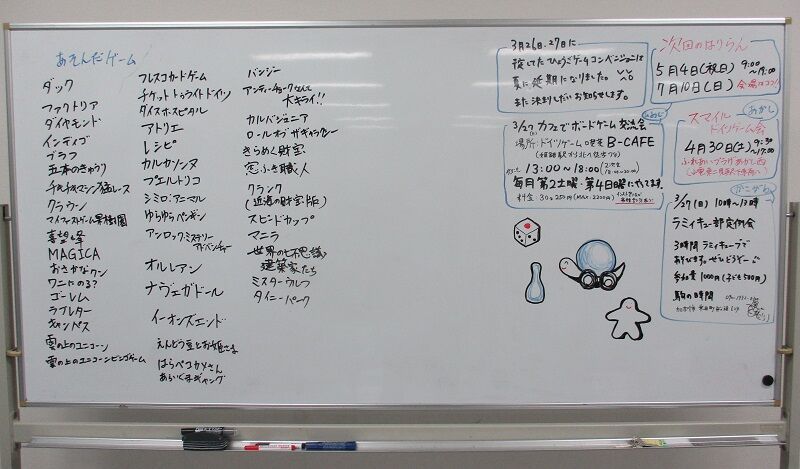 あそんだゲーム
ダック
ファクトリア
ダイヤモンド
インディゴ
ブラフ
五本のきゅうり
チキチキマシン猛レース
クラウン
マイファーストゲーム果樹園
喜望峰
MAGICA
おさかなワン
ワニにのる?
ゴーレム
ラブレター
キャンバス
雲の上のユニコーン
雲の上のユニコーンビンゴゲーム
フレスコカードゲーム
チケットトゥライドドイツ
ダイスホスピタル
アトリエ
レシピ
カルカソンヌ
プエルトリコ
シミロ:アニマル
ゆらゆらペンギン
アンロック:ミステリー
アドベンチャー
オルレアン
ナヴェガドール
イーオンズエンド
えんどう豆とお姫さま
はらペコカメさん
あらいぐまギャング
バンジー
アンティーチョークなんて
大キライ!!
カルパソニア
ロールオブザギャラクシー
きらめく財宝
窓ふき職人
クランク
(沈海の財宝版)
スピンドカップ
マニラ
世界の七不思議
建築家たち
ミスターウルフ
タイニーパーク
3月26日、27日に
復てた ひょうごゲームコンベンションは
夏に延期になりました。
また決まりしだいお知らせします。
次回のはりらん
5月4日(祝日) 9:00~17:00
7月10日(日) 会場はココ!
ひめじ
3/27(日) カフェでボードゲーム交流会
場所:ドイツゲーム喫茶 B-CAFE
(姫路駅から北へ徒歩7分)
13:00~18:00
毎月第2土曜・第4日曜にやってます。
料金:30分250円(MAX.2200円)
あかし
スマイル
ドイツゲーム会
4月30日(土) 9:30~17:00
ふれあいプラザあかし西
かこがわ
3/27(日) 10時~13時
ラミィキューブ部定例会
3時間ラミィキューブで
あそびます。ぜひどうぞー
参加費1000円(子ども500円)
駒の時間